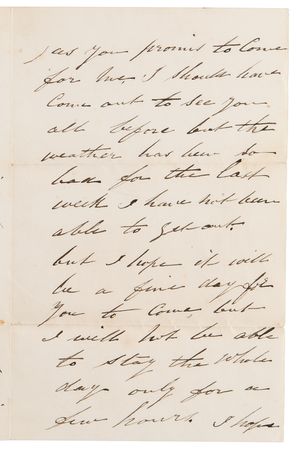 yes you promis to come
for me, I should have
come out to see you
all before but the
weather has been so
bad for the last
week I have not been
able to get out.
but I hope it will
be a fine day for
you to come but
I will not be able
to stay the whole
day only for a
few hours. I hope